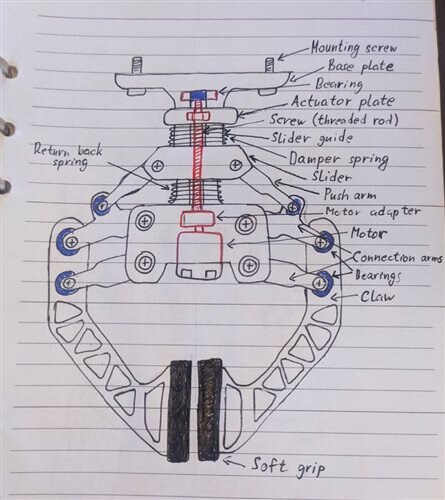 Mounting screw
Base plate
Bearing
Actuator plate
Screw (threaded rod)
Slider guide
Return back
spring
Damper spring
Slider
Push arm
Motor adapter
Motor
Connection arms
Bearings
Claw
Soft grip